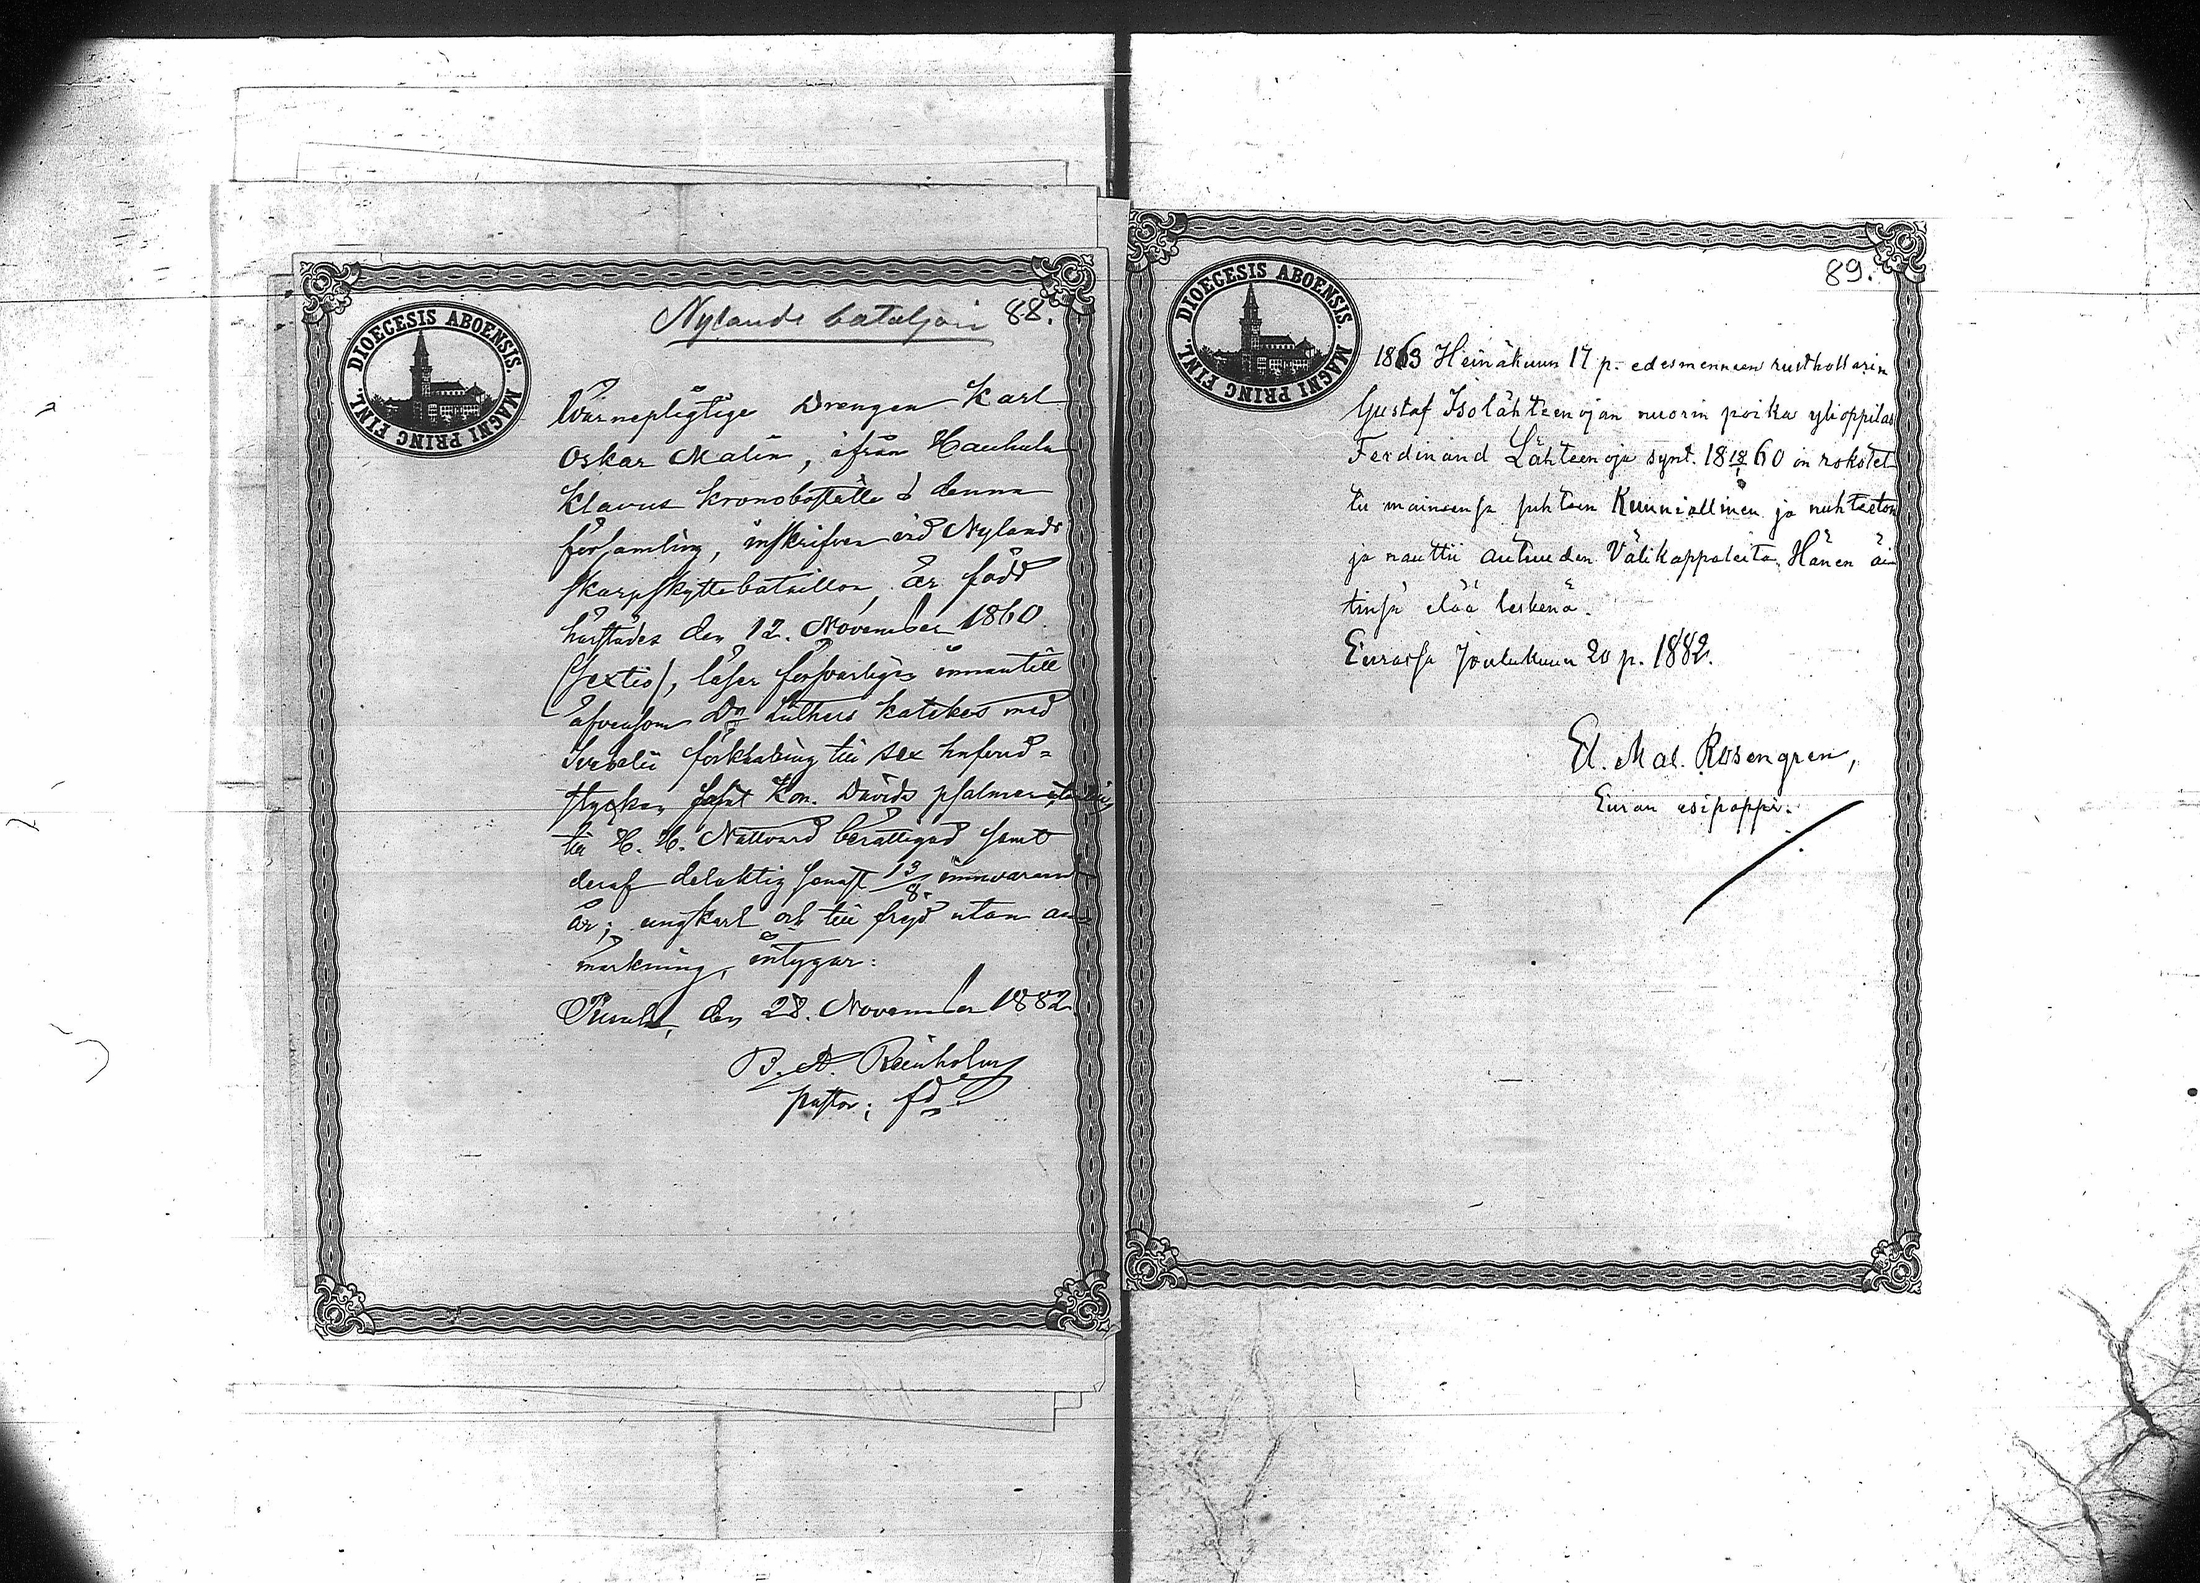 Nylands bataljon 88.
DIOECESIS ABOENSIS. MAGNI PRINC FINL.
Värnepligtige Drengen Karl
Oskar Malin, ifrån Hauhula
Klavus kronoboställe i denna
församling, inskrifven vid Nylands
skarpskyttebataillon, är född
härstädes den 12. November 1860
(sextio), läser försvarligen innantill
äfvensom Dr Luthers katekes med
Svebelii förklaring till sex hufvud=
stycken samt Kon. Davids psalmer,
till H. H. Nattvard berättigad samt
deraf delaktig senast 13/8 innevarande
år; ungkarl och till frejd utan an=
märkning, intygar:
den 28. November 1882
B. A. Reinholm
pastor; fd.
89.
DIOECESIS ABOENSIS. MAGNI PRINC FINL.
1863 Heinäkuun 17 p. edesmenneen rusthollarin
Gustaf Isolähteenojan nuorin poika ylioppilas
Ferdinand Lähteenoja synt. 18 18/1 60 on rokotet
tu maineensa suhteen Kunniallinen ja nuhteeton
ja nauttii autuuden Välikappaleita. Hänen äi
tinsä elää leskenä.
Eurassa Joulukuun 20 p. 1882.
El. Mal. Rosengren,
Euran esipappi.